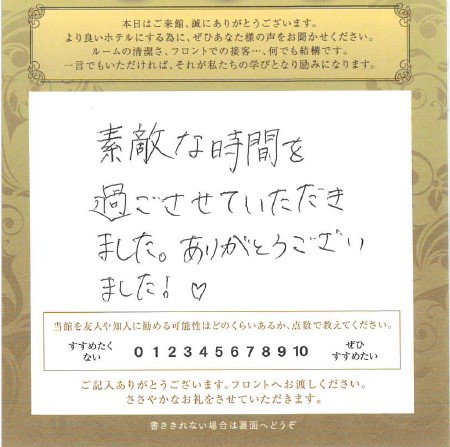 本日はご来館、誠にありがとうございます。
より良いホテルにする為に、ぜひあなた様の声をお聞かせください。
ルームの清潔さ、フロントでの接客…、何でも結構です。
一言でもいただければ、それが私たちの学びとなり励みになります。
素敵な時間を
過ごさせていただき
ました。ありがとうござい
ました! ♡
当館を友人や知人に勧める可能性はどのくらいあるか、点数で教えてください。
すすめたく
ない
0 1 2 3 4 5 6 7 8 9 10
ぜひ
すすめたい
ご記入ありがとうございます。フロントへお渡しください。
ささやかなお礼をさせていただきます。
書ききれない場合は裏面へどうぞ